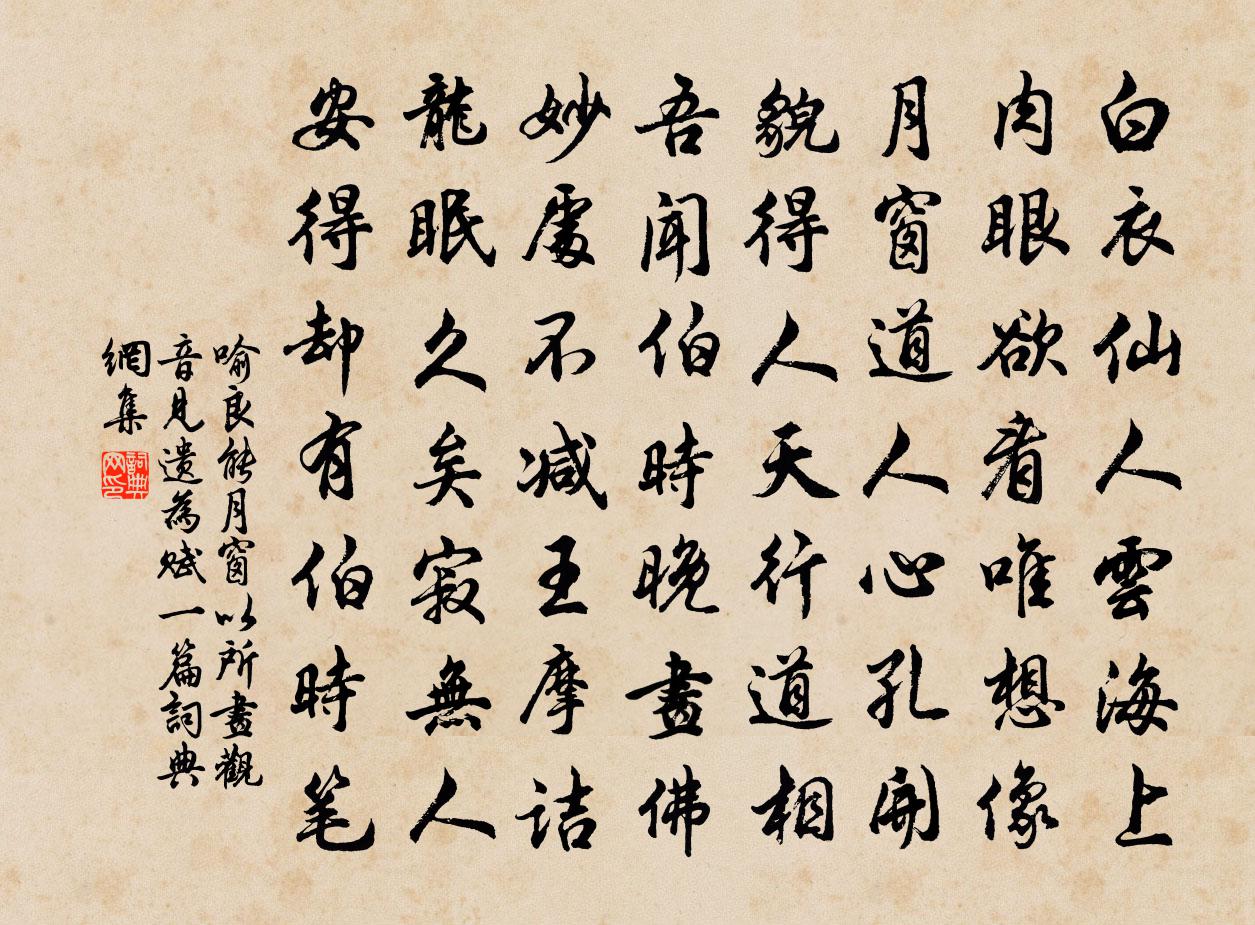 白衣仙人雲海上
肉眼欲看唯想像
月窗道人心孔開
貌得人天行道相
吾聞伯時晚畫佛
妙處不减王摩詰
龍眠久矣寂無人
安得却有伯時笔
喻良能月窗以所畫觀
音見遺為赋一篇詞典
網集
詞典网印